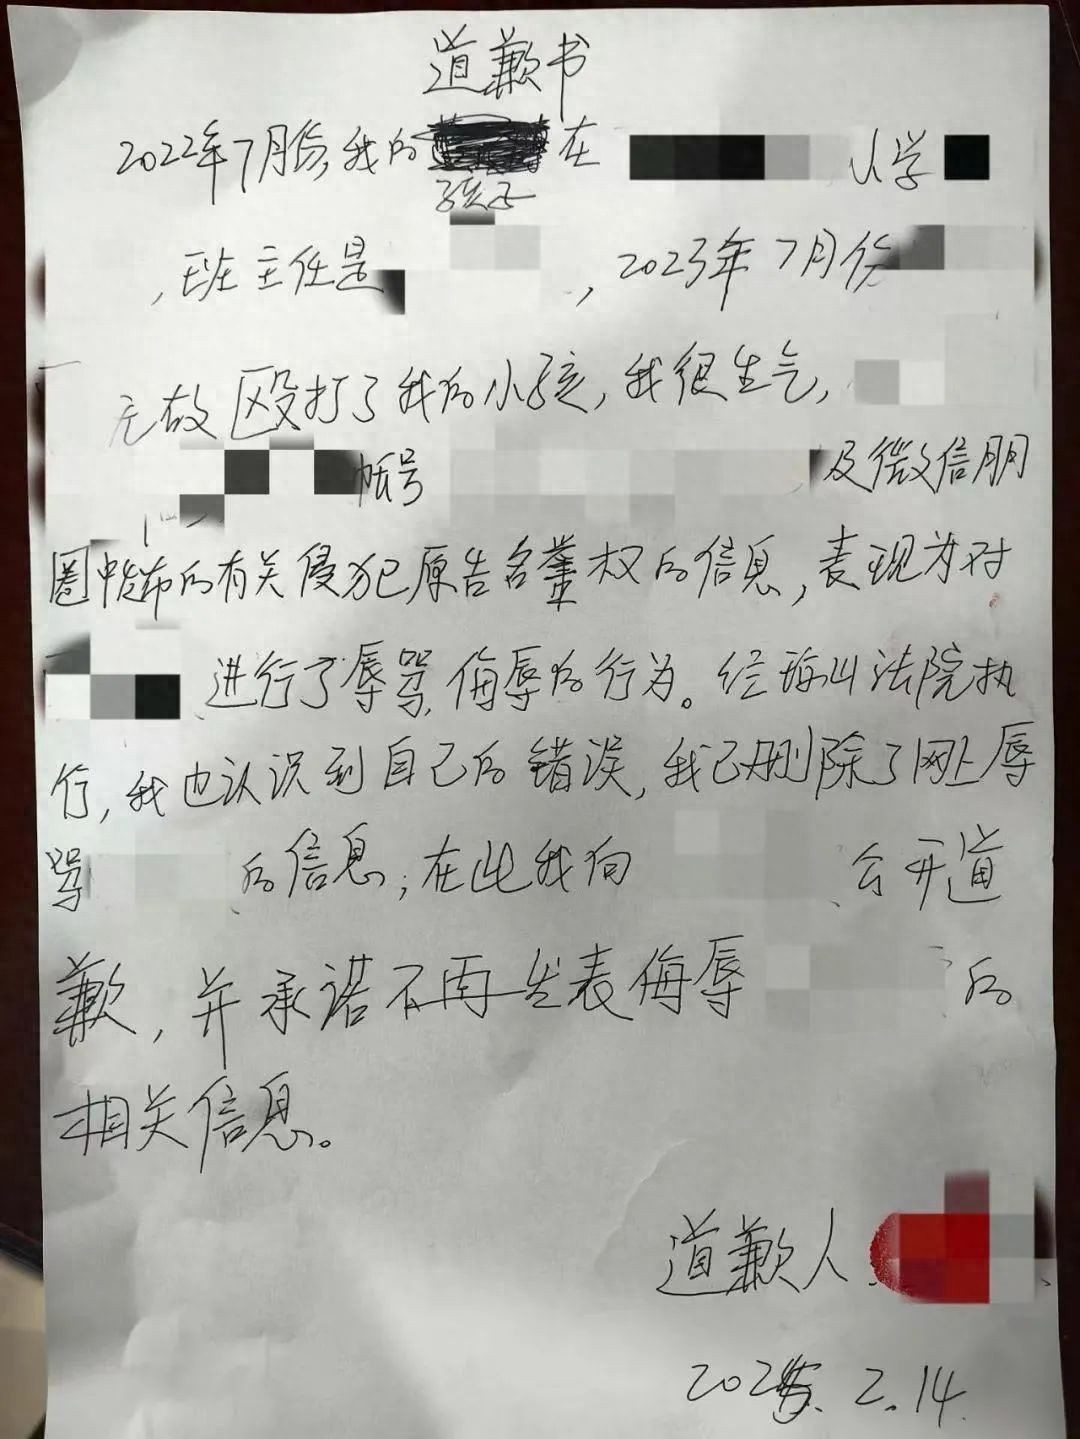 道歉书
2022年7月份,我的在 小学
孩子
,班主任是 ,2023年7月份
无故殴打了我的小孩,我很生气,
帐号 及微信朋
圈中发布的有关侵犯原告名誉权的信息,表现为对
进行了辱骂,侮辱的行为。经 法院执
行,我也认识到自己的错误,我已删除了网上辱
骂 的信息;在此我向 公开道
歉,并承诺不再发表侮辱 的
相关信息。
道歉人
2025.2.14